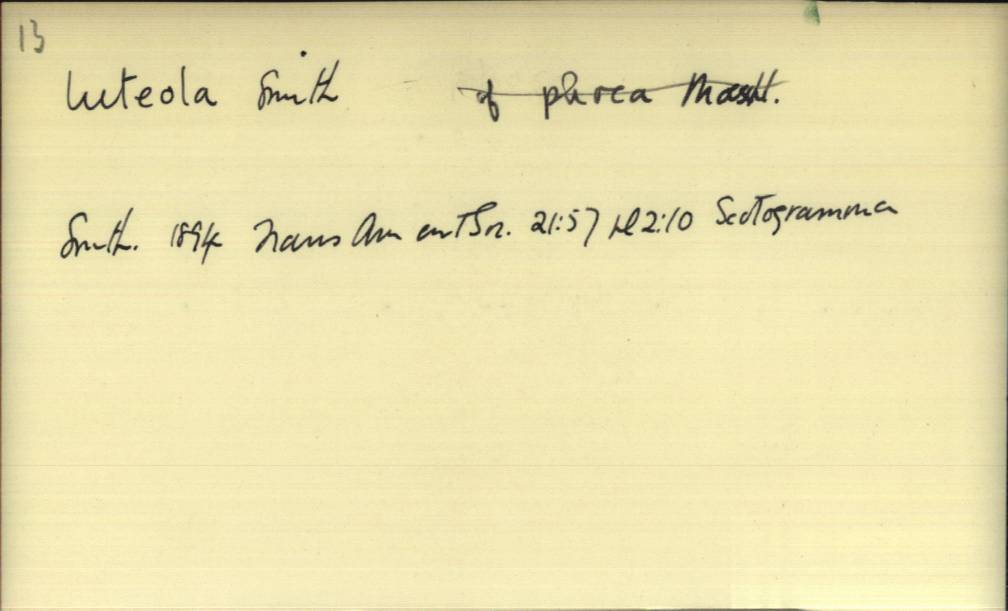 13
luteola Smith of phoca Möschl.
Smith. 1894 Trans Am ent Soc. 21:57 pl 2:10 Scotogramma